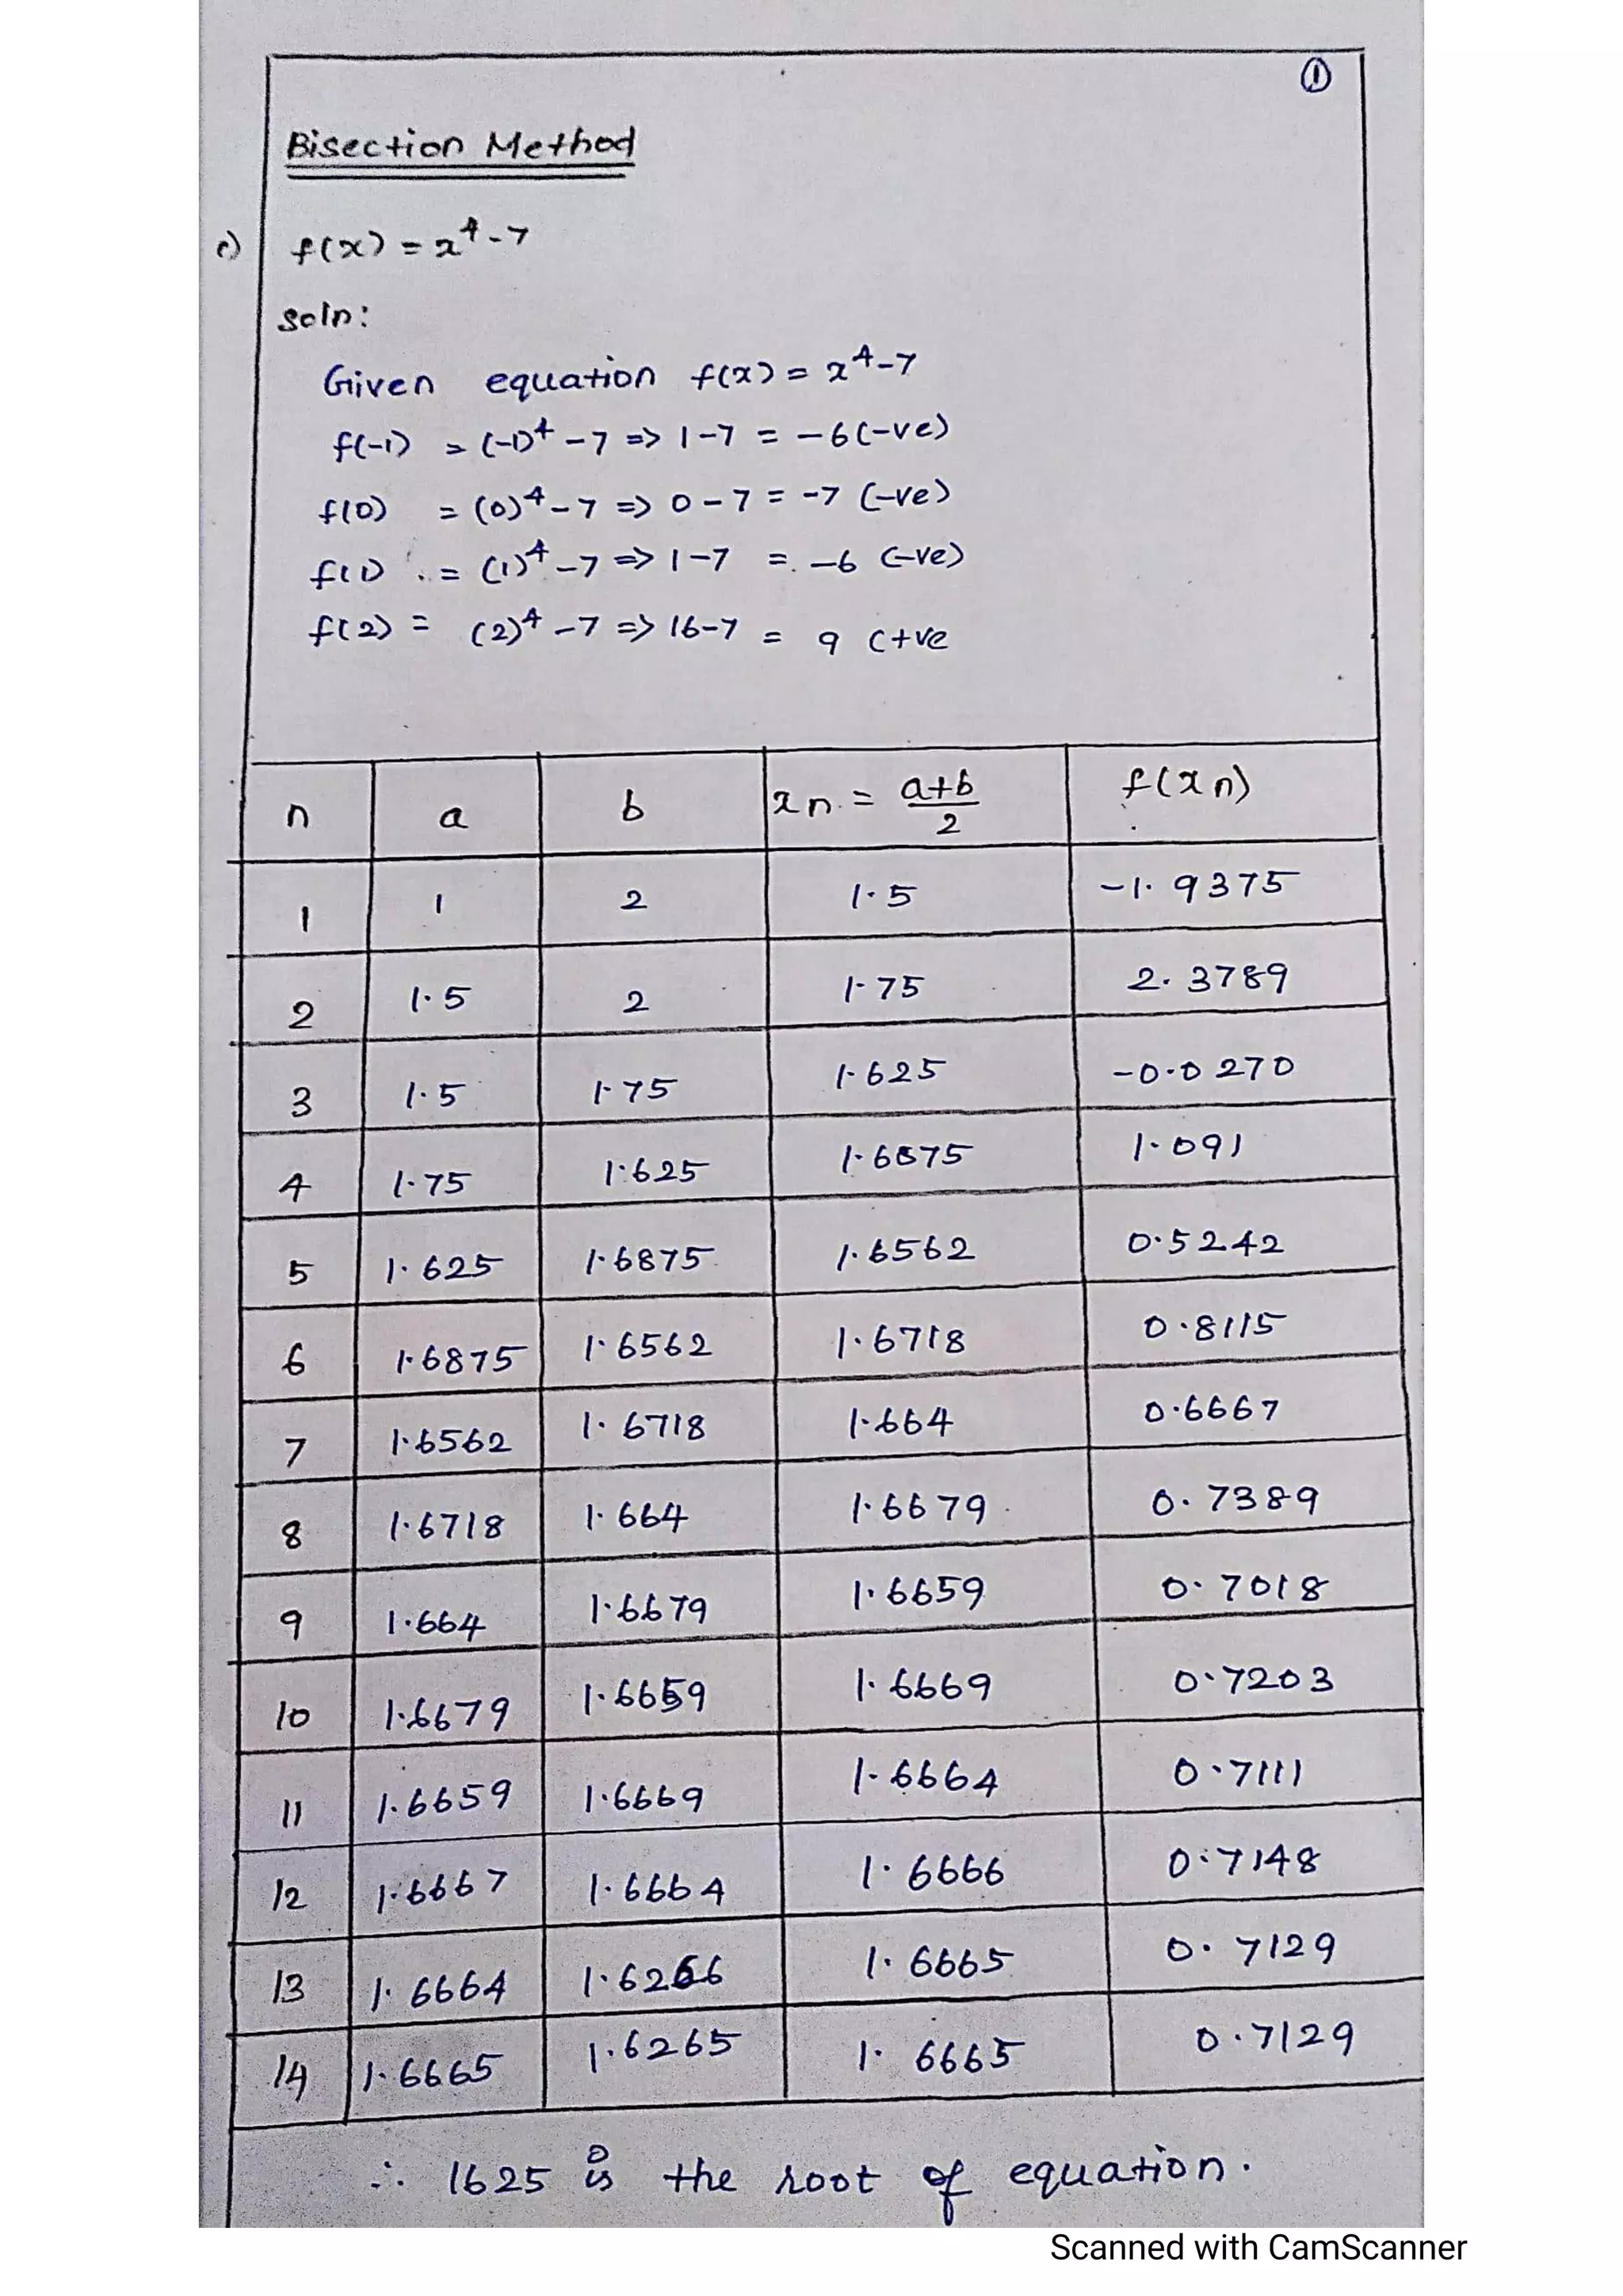 ①
Bisection Method
c) f(x) = x⁴-7
Soln:
Given equation f(x) = x⁴-7
f(-1) = (-1)⁴ -7 => 1-7 = -6(-ve)
f(0) = (0)⁴-7 => 0-7 = -7 (-ve)
f(1) = (1)⁴-7 => 1-7 = -6 (-ve)
f(2) = (2)⁴-7 => 16-7 = 9 (+ve
n a b xn = a+b/2 f(xn)
1 1 2 1.5 -1.9375
2 1.5 2 1.75 2.3789
3 1.5 1.75 1.625 -0.0270
4 1.75 1.625 1.6875 1.091
5 1.625 1.6875 1.6562 0.5242
6 1.6875 1.6562 1.6718 0.8115
7 1.6562 1.6718 1.664 0.6667
8 1.6718 1.664 1.6679 0.7389
9 1.664 1.6679 1.6659 0.7018
10 1.6679 1.6659 1.6669 0.7203
11 1.6659 1.6669 1.6664 0.7111
12 1.6667 1.6664 1.6666 0.7148
13 1.6664 1.6266 1.6665 0.7129
14 1.6665 1.6265 1.6665 0.7129
∴ 1625 is the root of equation.
Scanned with CamScanner